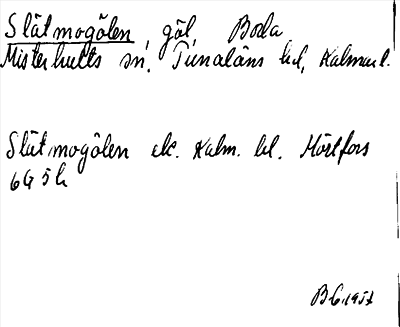 Slätmogölen, göl, Boda
Misterhults sn. Tunaläns hd, Kalmar l.
Slätmogölen ek. Kalm. bl. Mörtfors
6G 5h
BC 1957